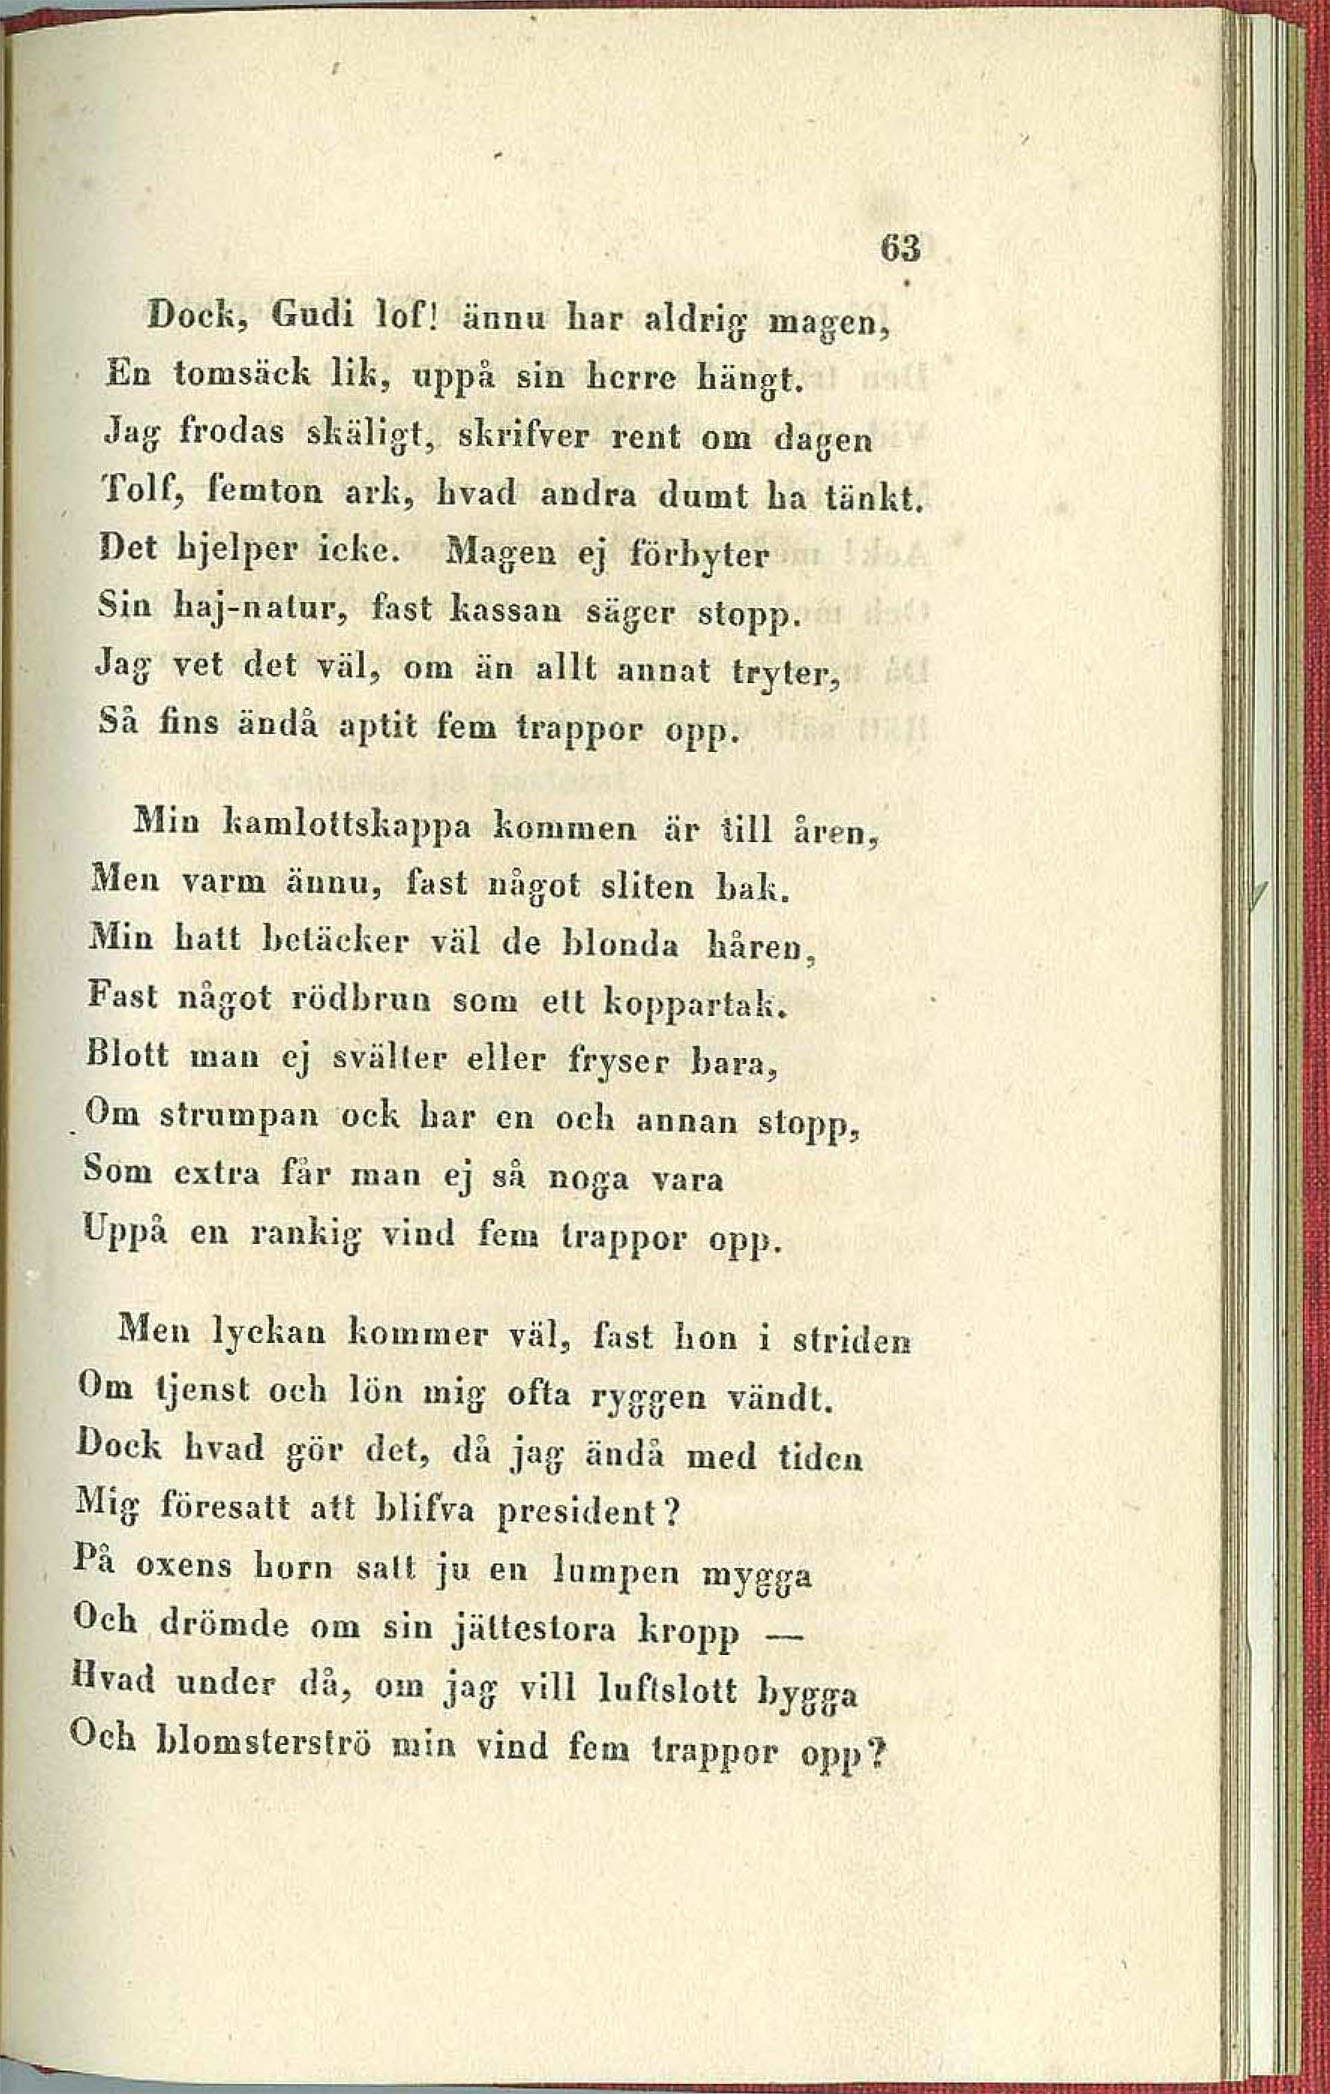 63
Dock, Gudi lof! ännu har aldrig magen,
En tomsäck lik, uppå sin herre hängt.
Jag frodas skäligt, skrifver rent om dagen
Tolf, femton ark, hvad andra dumt ha tänkt.
Det hjelper icke. Magen ej förbyter
Sin haj-natur, fast kassan säger stopp.
Jag vet det väl, om än allt annat tryter,
Så fins ändå aptit fem trappor opp.
Min kamlottskappa kommen är till åren,
Men varm ännu, fast något sliten bak.
Min hatt betäcker väl de blonda håren,
Fast något rödbrun som ett koppartak.
Blott man ej svälter eller fryser bara,
Om strumpan ock har en och annan stopp,
Som extra får man ej så noga vara
Uppå en rankig vind fem trappor opp.
Men lyckan kommer väl, fast hon i striden
Om tjenst och lön mig ofta ryggen vändt.
Dock hvad gör det, då jag ändå med tiden
Mig föresatt att blifva president?
På oxens horn satt ju en lumpen mygga
Och drömde om sin jättestora kropp —
Hvad under då, om jag vill luftslott bygga
Och blomsterströ min vind fem trappor opp?